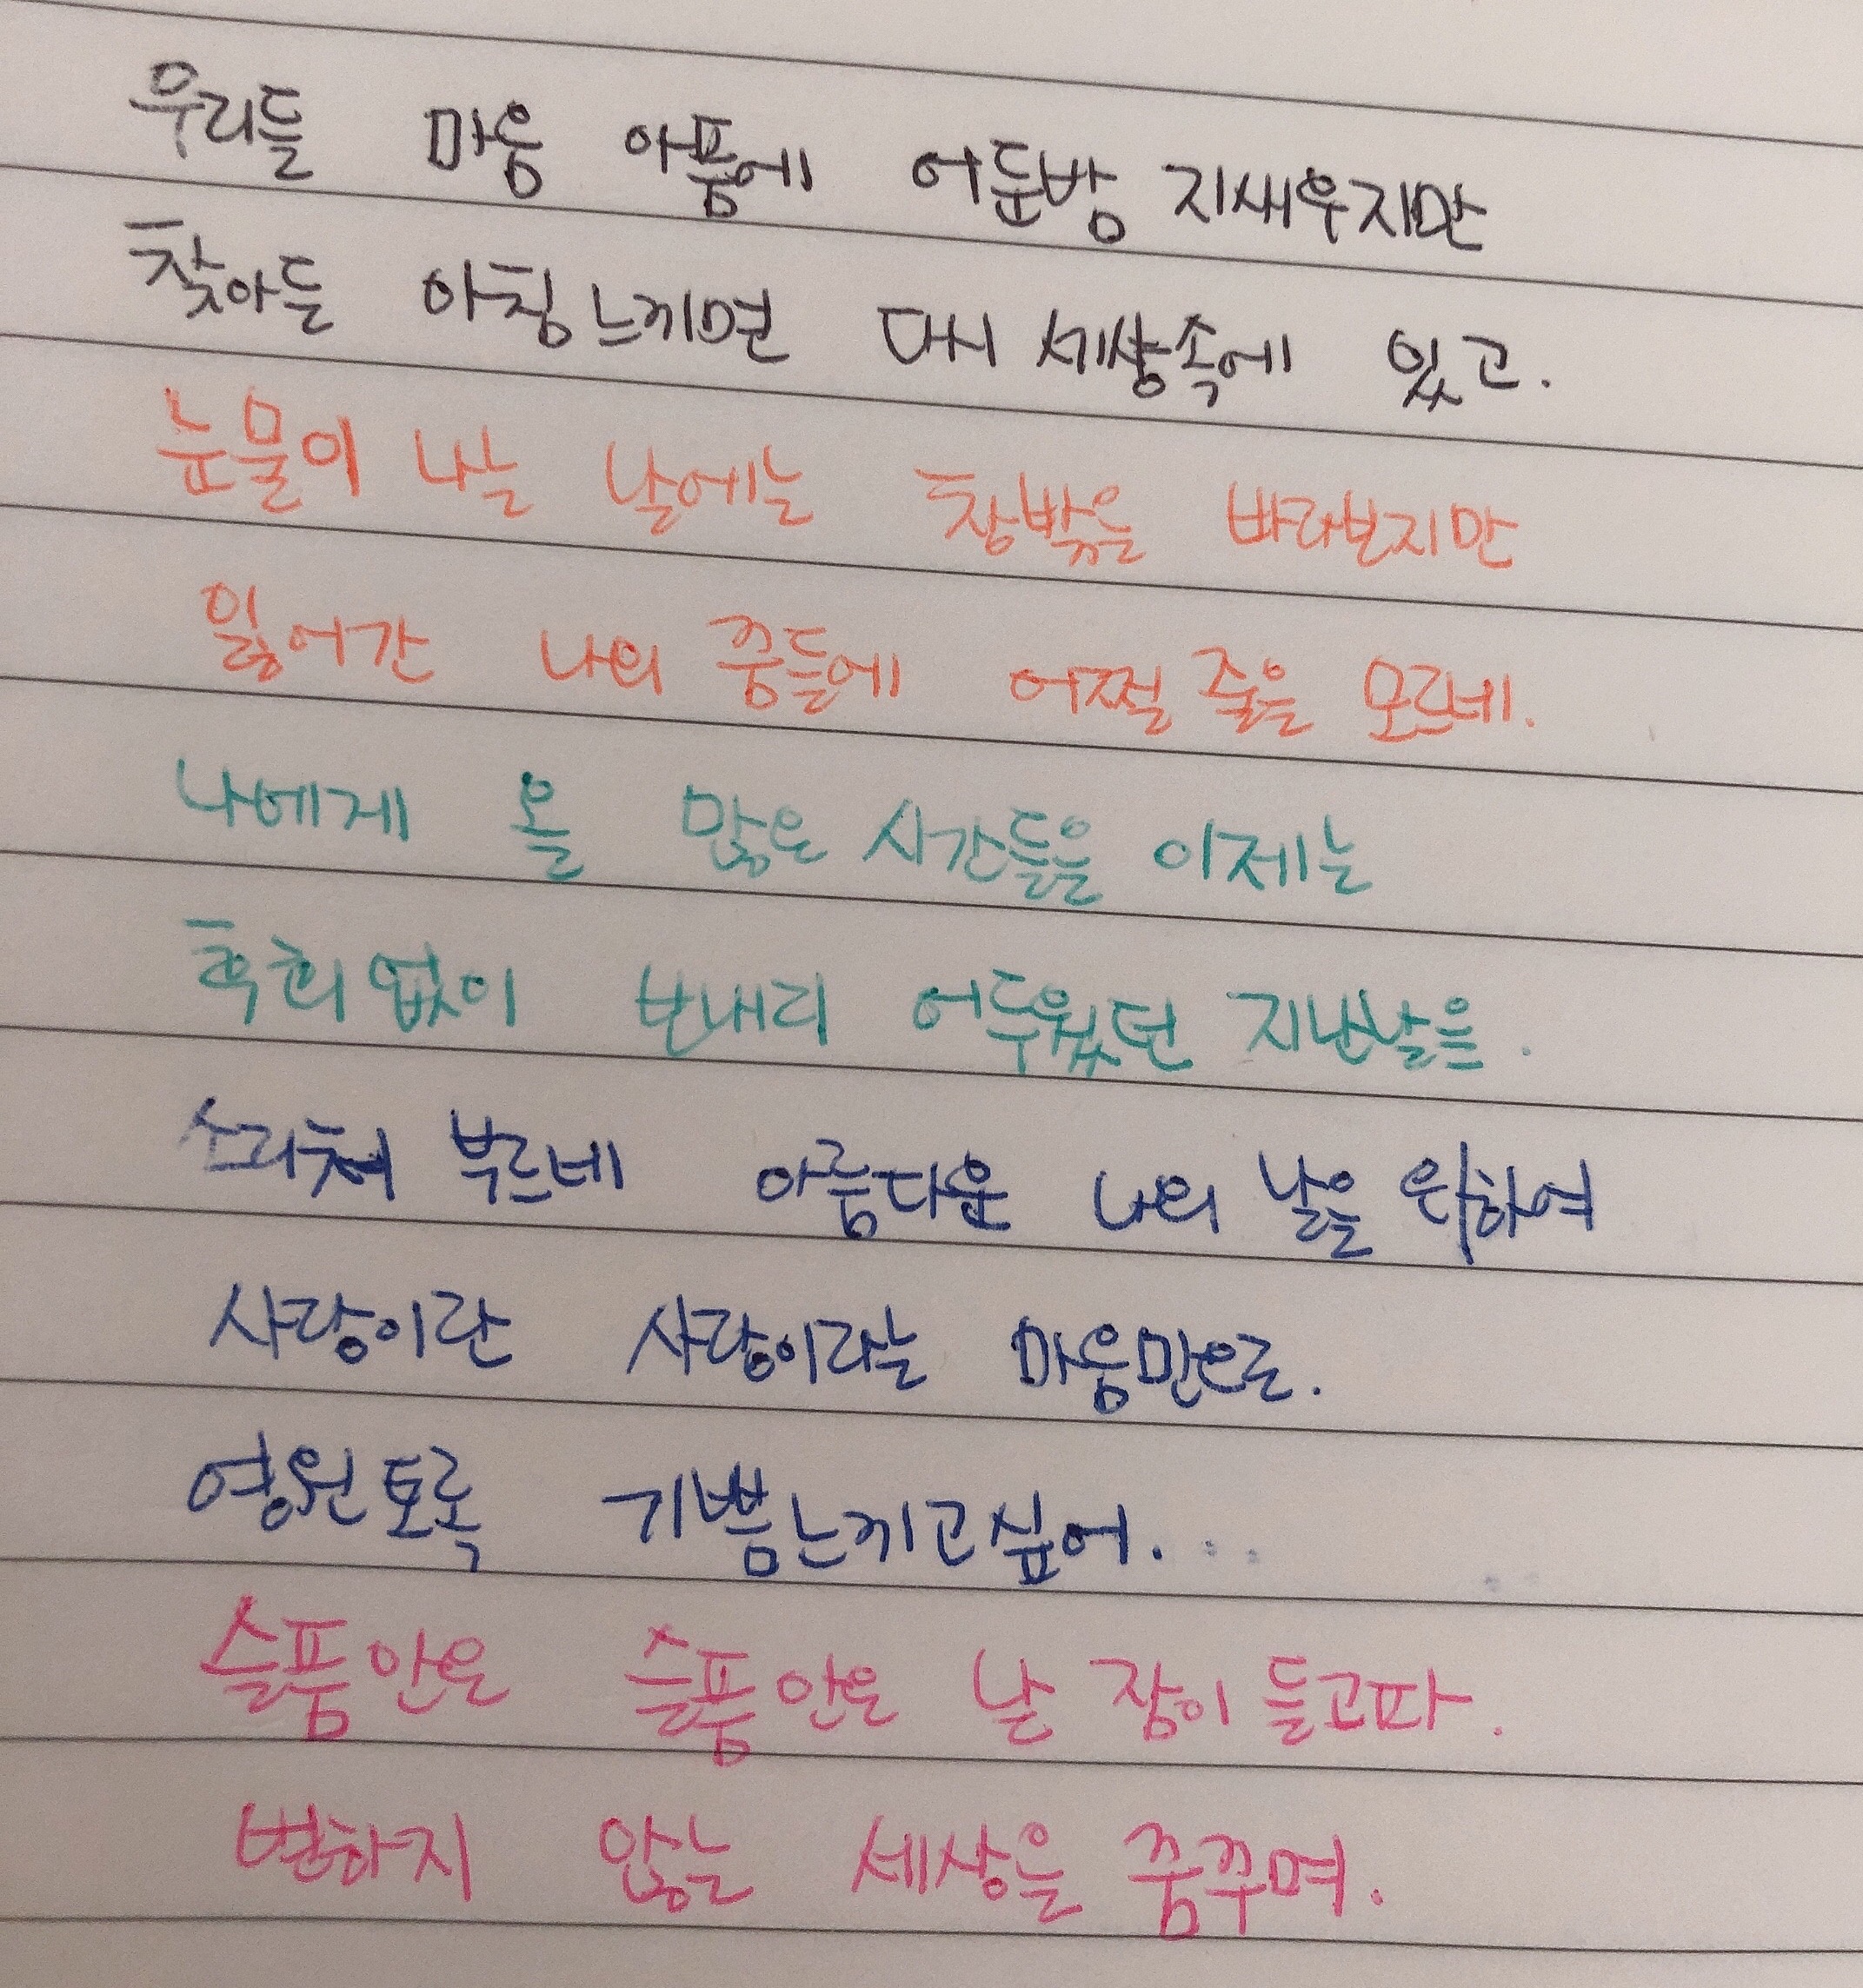 우리들 마음 아픔에 어둔밤 지새우지만
찾아든 아침느끼면 다시 세상속에 있고.
눈물이 나는 날에는 창밖을 바라보지만
잃어간 나의 꿈들에 어쩔 줄을 모르네.
나에게 올 많은 시간들을 이제는
후회없이 보내리 어두웠던 지난날을.
소리쳐 부르네 아름다운 나의 날을 위하여
사랑이란 사랑이라는 마음만으로.
영원토록 기쁨느끼고싶어...
슬픔안은 슬픔안은 날 잠이 들고파.
변하지 않는 세상을 꿈꾸며.